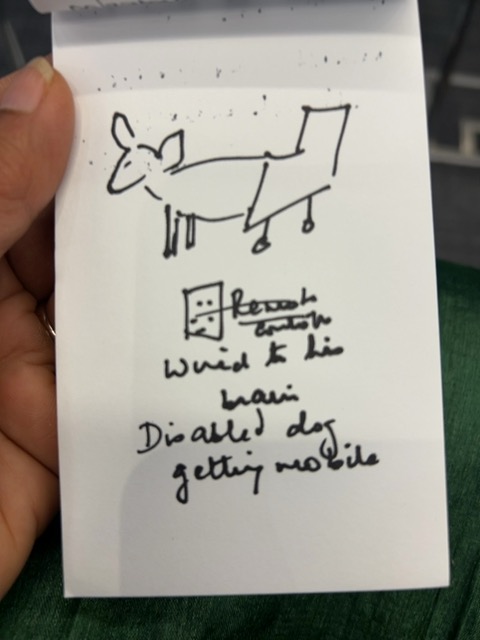 Remote
control
Wired to his
brain
Disabled dog
getting mobile